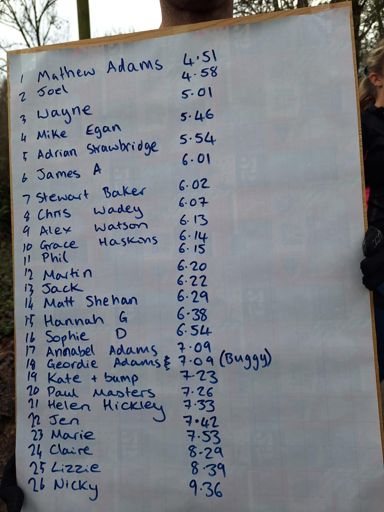 1 Mathew Adams 4.51
2 Joel 4.58
3 Wayne 5.01
4 Mike Egan 5.46
5 Adrian Strawbridge 5.54
6 James A 6.01
7 Stewart Baker 6.02
8 Chris Wadey 6.07
9 Alex Watson 6.13
10 Grace Haskins 6.14
11 Phil 6.15
12 Martin 6.20
13 Jack 6.22
14 Matt Shehan 6.29
15 Hannah G 6.38
16 Sophie D 6.54
17 Annabel Adams & 7.09
18 Geordie Adams 7.09 (Buggy)
19 Kate + bump 7.23
20 Paul Masters 7.26
21 Helen Hickley 7.33
22 Jen 7.42
23 Marie 7.53
24 Claire 8.29
25 Lizzie 8.39
26 Nicky 9.36